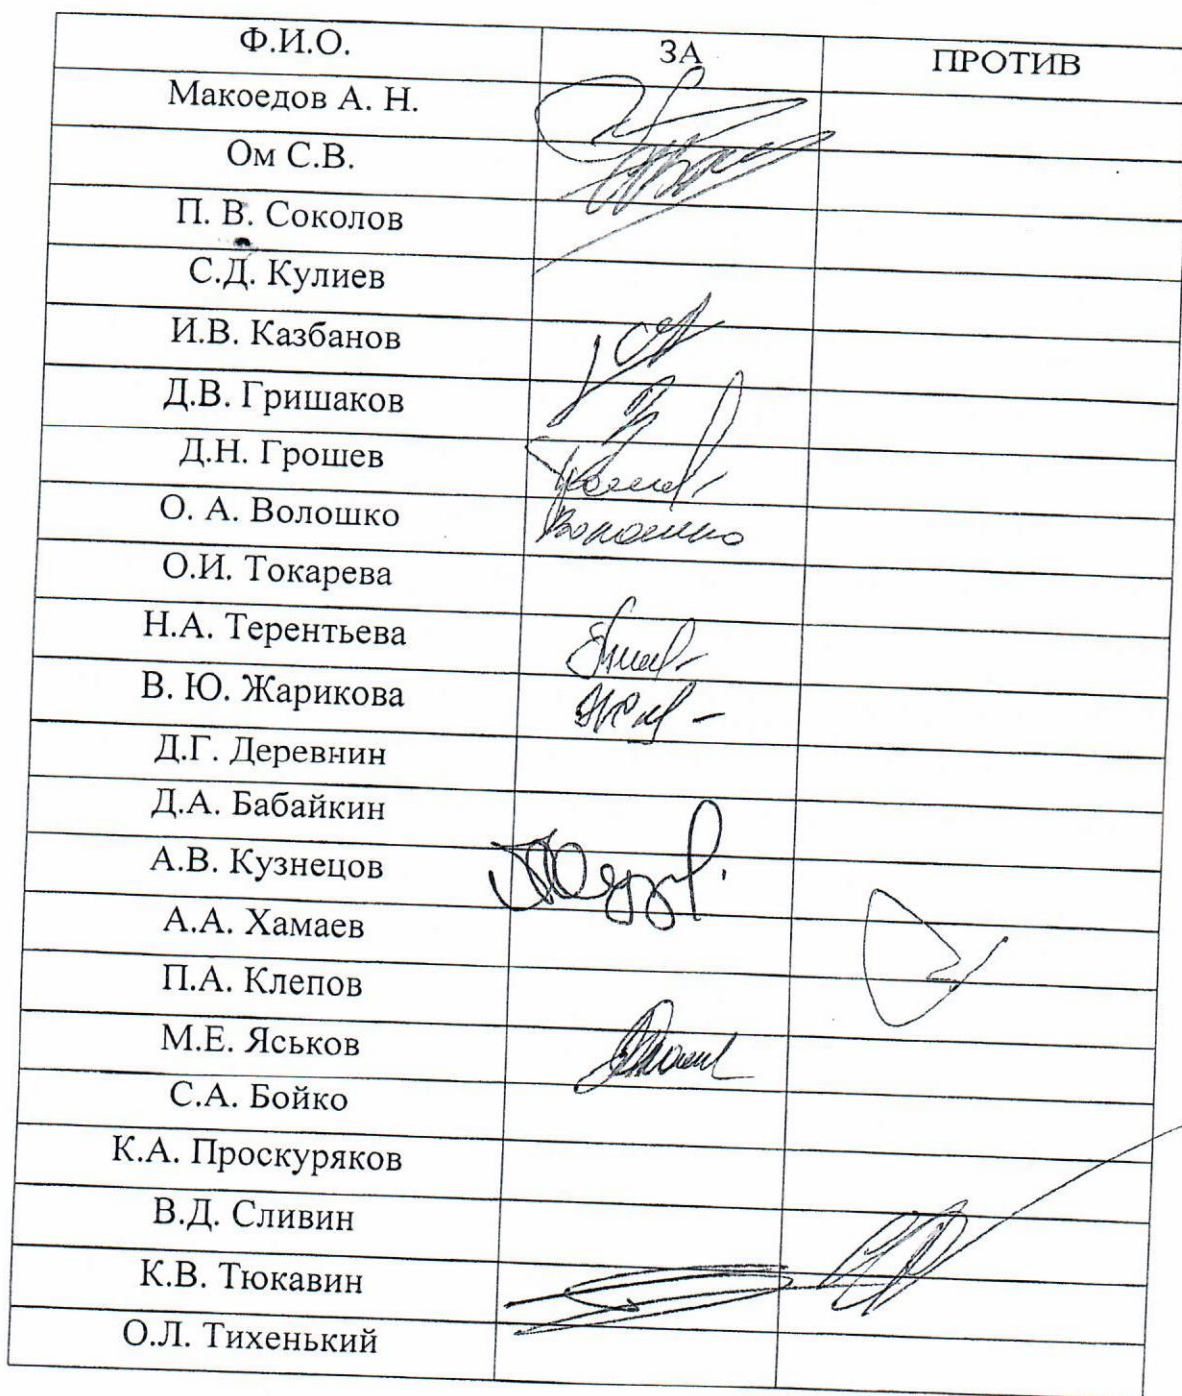 Ф.И.О. ЗА ПРОТИВ
Макоедов А. Н.
Ом С.В.
П. В. Соколов
С.Д. Кулиев
И.В. Казбанов
Д.В. Гришаков
Д.Н. Грошев
О. А. Волошко Волошко
О.И. Токарева
Н.А. Терентьева
В. Ю. Жарикова
Д.Г. Деревнин
Д.А. Бабайкин
А.В. Кузнецов
А.А. Хамаев
П.А. Клепов
М.Е. Яськов
С.А. Бойко
К.А. Проскуряков
В.Д. Сливин
К.В. Тюкавин
О.Л. Тихенький